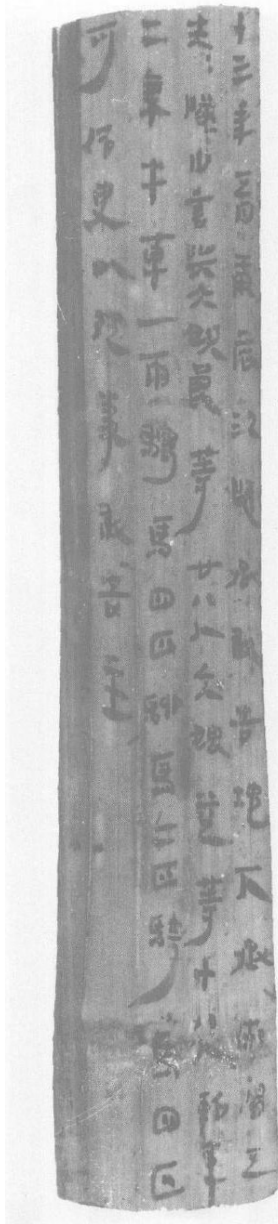 十三年五月庚辰江陵丞敢告地下丞市陽五
夫=隧少言與大奴良等廿八人大婢益等十八人軺車
二乘牛車一兩騶馬四匹騮馬二匹騎馬四匹
可令吏以從事敢告主